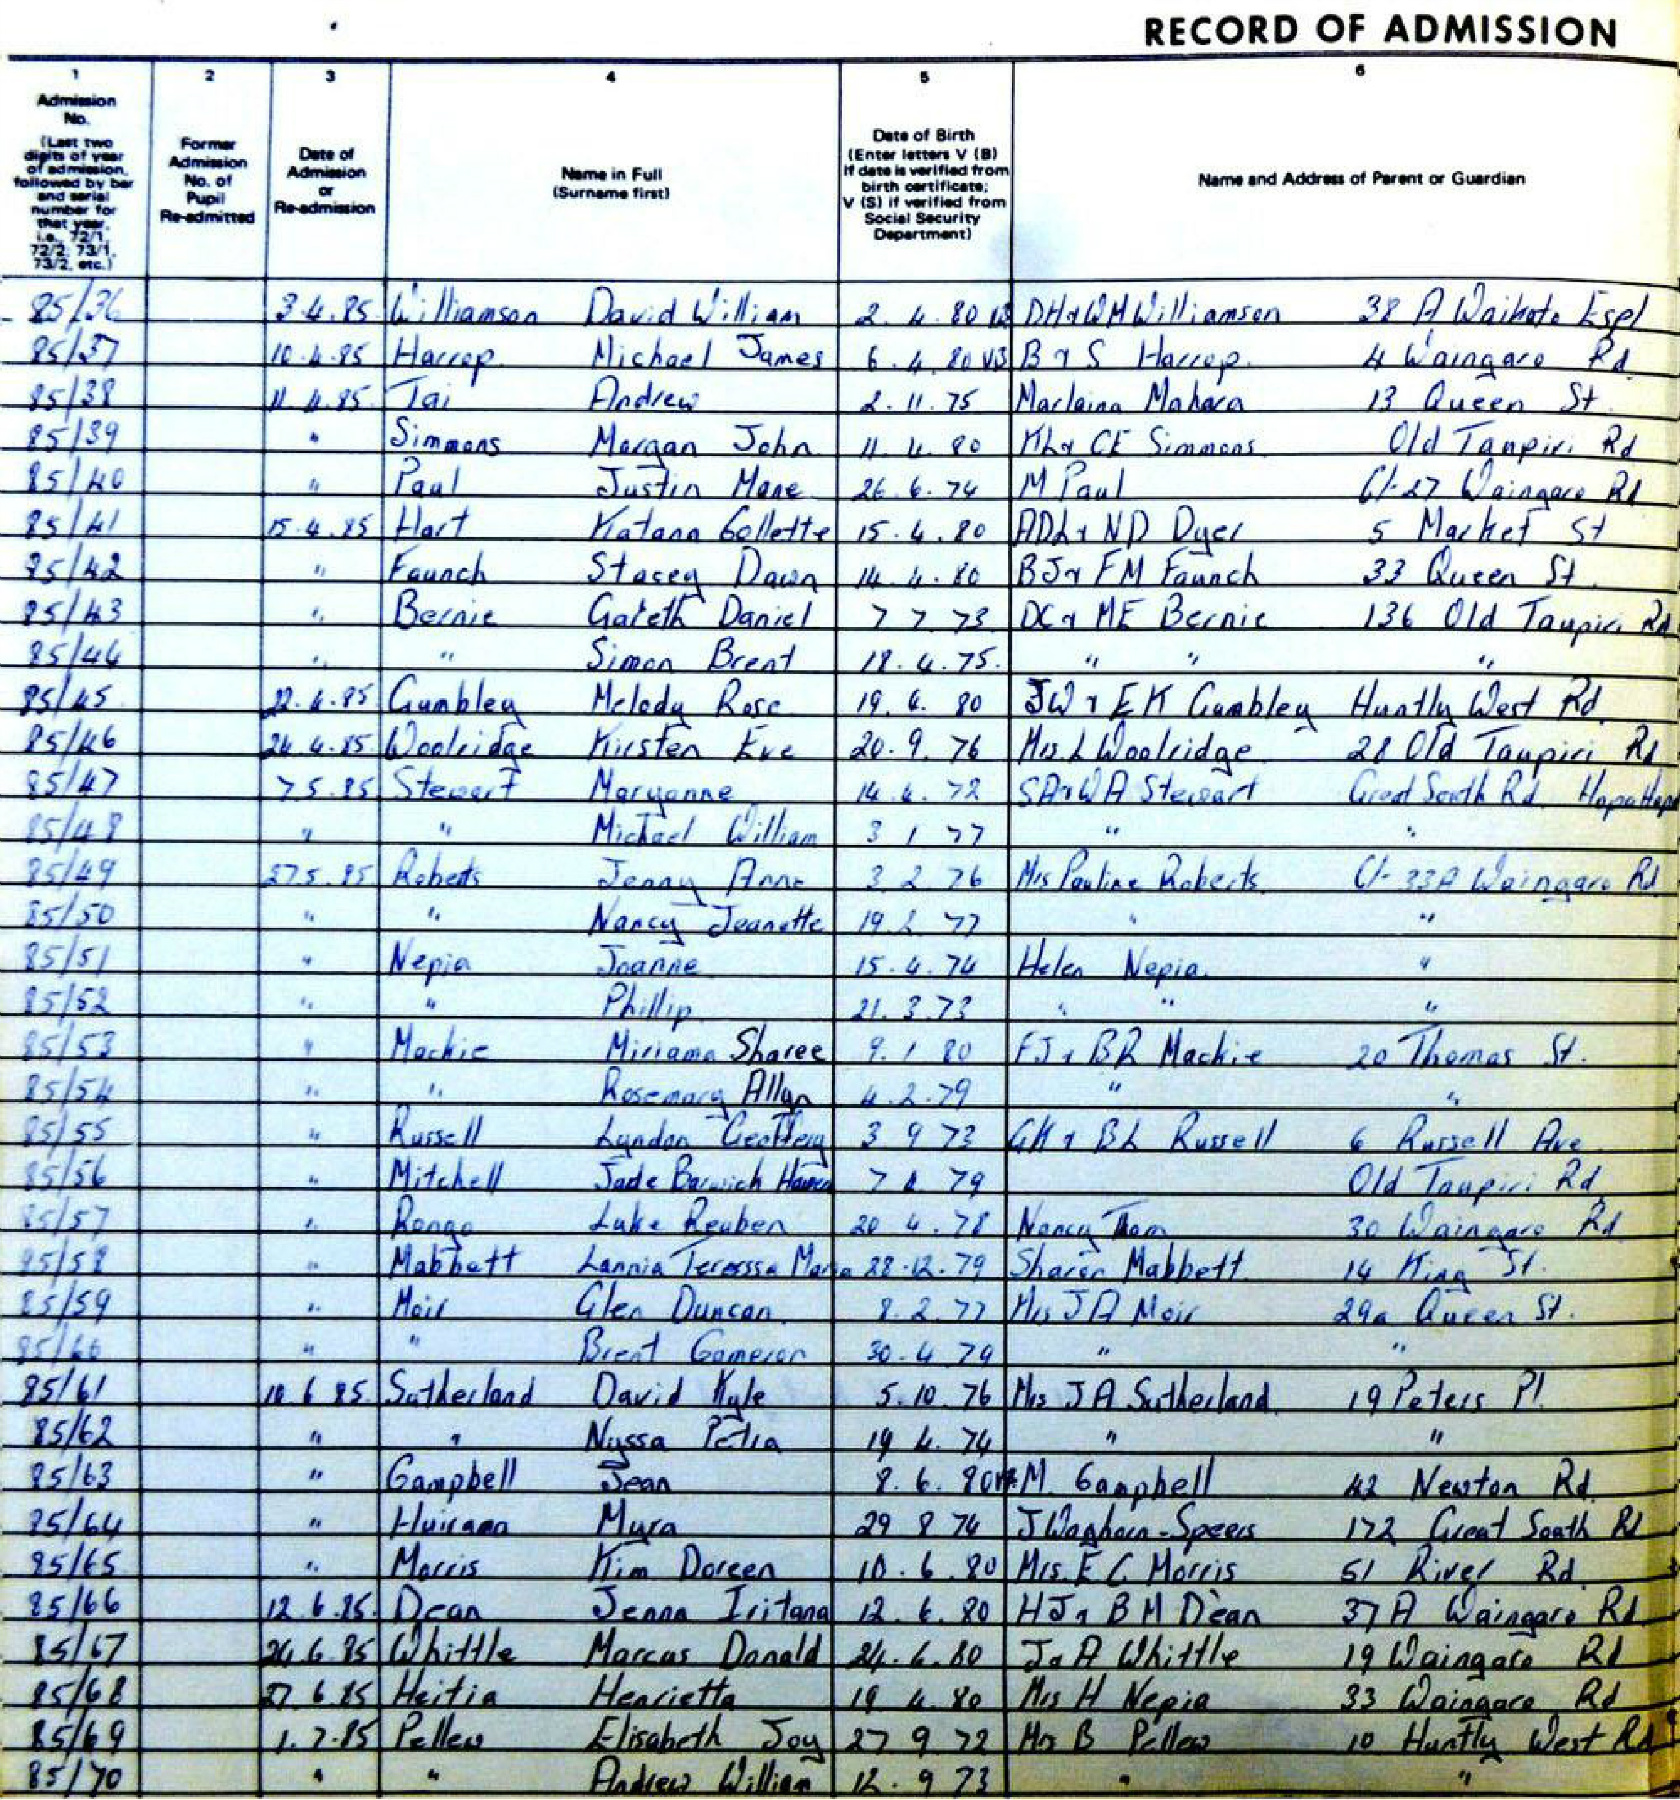 RECORD OF ADMISSION
1 2 3 4 5 6
Admission No. (Last two digits of year of admission, followed by bar and serial number for that year, i.e., 72/1, 72/2, 73/1, 73/2, etc.)
Former Admission No. of Pupil Re-admitted
Date of Admission or Re-admission
Name in Full (Surname first)
Date of Birth (Enter letters V (B) if date is verified from birth certificate; V (S) if verified from Social Security Department)
Name and Address of Parent or Guardian
85/36 3.4.85 Williamson David William 2. 4. 80 DH & WM Williamson 38 A Waikato Espl
85/37 10.4.85 Harrop Michael James 6. 4. 80 VB B & S Harrop 4 Waingaro Rd
85/38 11.4.85 Tai Andrew 2. 11. 75 Marlaina Mahara 13 Queen St
85/39 " Simmons Morgan John 11. 4. 80 KL & CE Simmons Old Taupiri Rd
85/40 " Paul Justin Mane 26. 6. 74 M Paul C/- 27 Waingaro Rd
85/41 15.4.85 Hart Katana Collette 15. 4. 80 ADL & ND Dyer 5 Market St
85/42 " Faunch Stacey Dawn 14. 4. 80 BJ & FM Faunch 33 Queen St.
85/43 " Bernie Gareth Daniel 7 7 73 DC & ME Bernie 136 Old Taupiri Rd
85/44 " " Simon Brent 18. 4. 75. " " "
85/45 22.4.85 Gumbley Melody Rose 19. 4. 80 JW & EK Gumbley Huntly West Rd
85/46 24.4.85 Woolridge Kirsten Eve 20. 9. 76 Mrs. L Woolridge 28 Old Taupiri Rd
85/47 7.5.85 Stewart Maryanne 14. 4. 72 SA & WA Stewart Great South Rd
85/48 " " Michael William 3 1 77 " "
85/49 27.5.85 Roberts Jenny Anne 3. 2. 76 Mrs Pauline Roberts C/- 33A Waingaro Rd
85/50 " " Nancy Jeanette 19. 2. 77 " "
85/51 " Nepia Joanne 15. 4. 74 Helen Nepia "
85/52 " " Phillip 21. 3. 73 " " "
85/53 " Mackie Miriama Sharee 9. 1 80 FJ & BR Mackie 20 Thomas St.
85/54 " " Rosemary Allyn 4. 2. 79 " "
85/55 " Russell Lyndon Geoffery 3 9 73 GK & BL Russell 6 Russell Ave
85/56 " Mitchell Jade Barwick 79 Old Taupiri Rd
85/57 " Rongo Luke Reuben 20 4. 78 Nancy Thom 30 Waingaro Rd
85/58 " Mabbett Lannia Teresssa Maria 28. 12. 79 Sharon Mabbett 14 King St.
85/59 " Moir Glen Duncan 8. 2. 77 Mrs J A Moir 29a Queen St.
85/60 " " Brent Cameron 30. 4 79 " "
85/61 10 6 85. Sutherland David Kyle 5. 10. 76 Mrs J A Sutherland 19 Peters Pl.
85/62 " " Nyssa Petra 19 4. 74 " "
85/63 " Campbell Jean 8. 6. 80 M. Campbell 42 Newton Rd
85/64 " Huirama Myra 29 8 74 J Waghorn-Speers 172 Great South Rd
85/65 " Morris Kim Doreen 10. 6. 80 Mrs. E C Morris 51 River Rd
85/66 12.6.85. Dean Jenna Iritana 12. 6. 80 HJ & BM Dean 37 A Waingaro Rd
85/67 24.6.85 Whittle Marcus Donald 24. 6. 80 J & A Whittle 19 Waingaro Rd
85/68 27.6.85 Heitia Henrietta 19 4. 80 Mrs H Nepia 33 Waingaro Rd
85/69 1.7.85 Pellew Elisabeth Joy 27 9 72 Mr B Pellew 10 Huntly West Rd
85/70 " " Andrew William 12. 9 73 " "